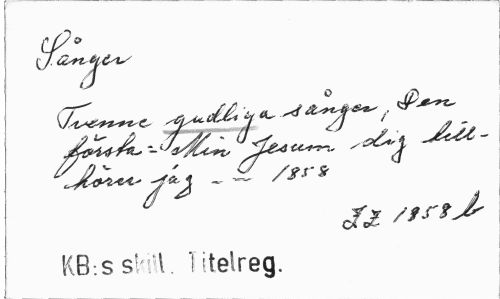 Sånger
Tvenne gudliga sånger, Den
första = Min Jesum dig till-
hörer jag - - 1858
ZZ 1858 b
KB:s skill. Titelreg.